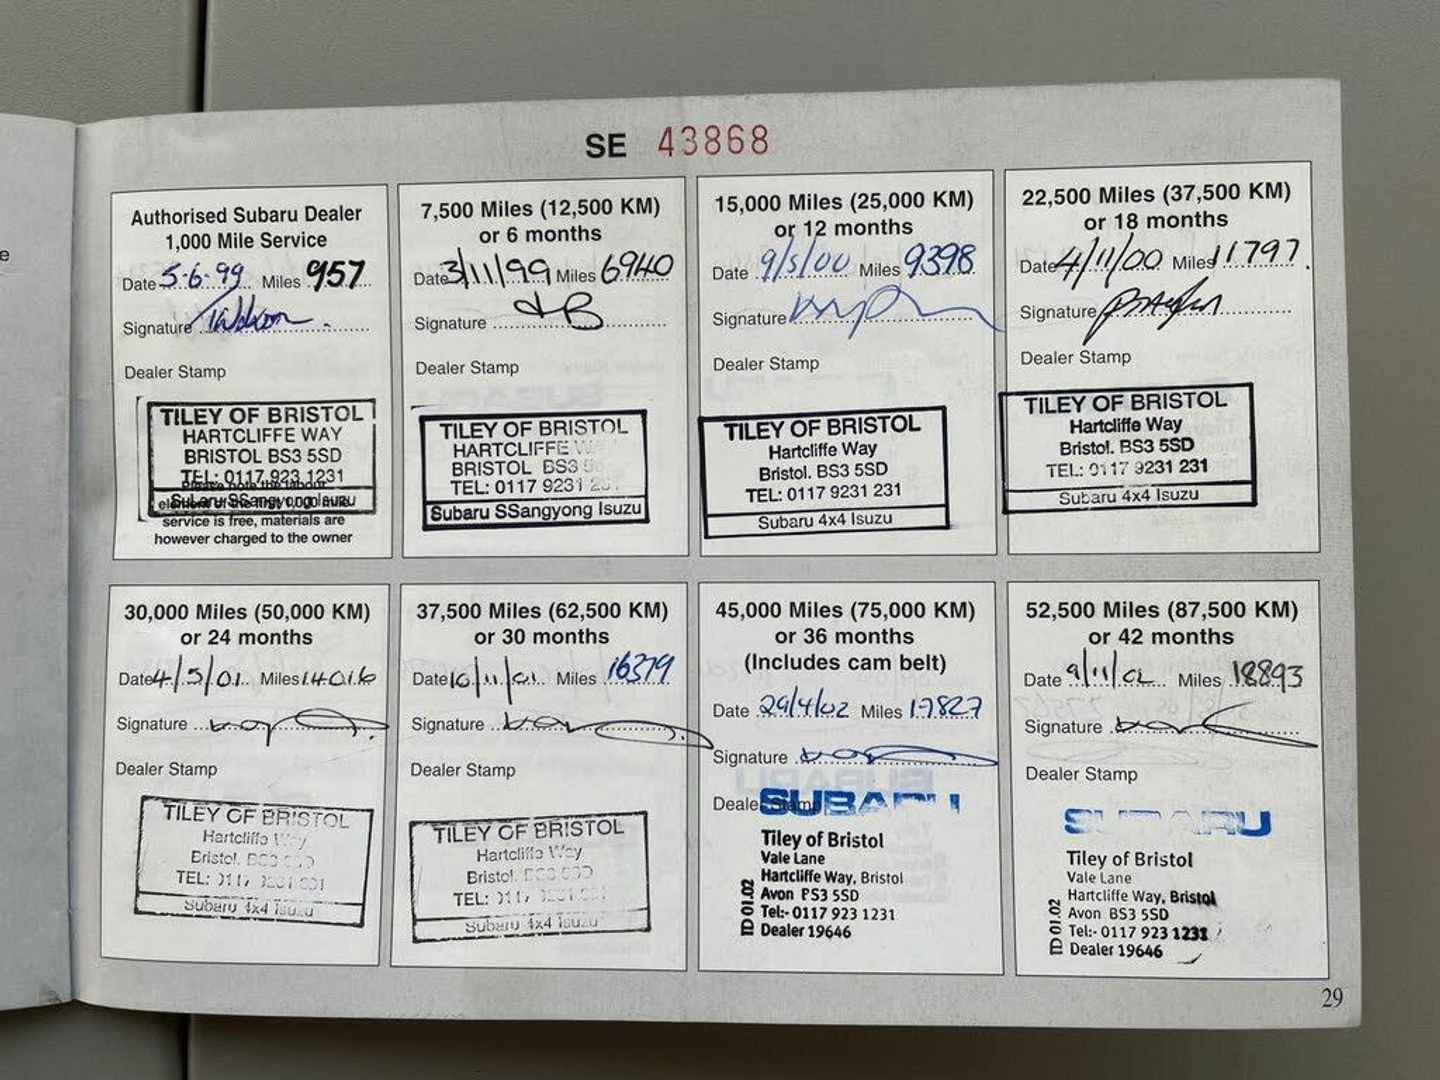 e
SE 43868
Authorised Subaru Dealer
1,000 Mile Service
Date 5·6·99 Miles 957
Signature
Dealer Stamp
TILEY OF BRISTOL
HARTCLIFFE WAY
BRISTOL BS3 5SD
TEL: 0117 923 1231
Please note the labour
element of the first 1,000 mile
Subaru SSangyong Isuzu
service is free, materials are
however charged to the owner
7,500 Miles (12,500 KM)
or 6 months
Date 3/11/99 Miles 6940
Signature
Dealer Stamp
TILEY OF BRISTOL
HARTCLIFFE
BRISTOL BS3
TEL: 0117 9231
Subaru SSangyong Isuzu
15,000 Miles (25,000 KM)
or 12 months
Date 9/5/00 Miles 9398
Signature
Dealer Stamp
TILEY OF BRISTOL
Hartcliffe Way
Bristol. BS3 5SD
TEL: 0117 9231 231
Subaru 4x4 Isuzu
22,500 Miles (37,500 KM)
or 18 months
Date 4/11/00 Miles 11797
Signature
Dealer Stamp
TILEY OF BRISTOL
Hartcliffe Way
Bristol. BS3 5SD
TEL: 0117 9231 231
Subaru 4x4 Isuzu
30,000 Miles (50,000 KM)
or 24 months
Date 4/5/01 Miles 14016
Signature
Dealer Stamp
TILEY OF BRISTOL
Hartcliffe Way
Bristol.
TEL:
Subaru 4x4 Isuzu
37,500 Miles (62,500 KM)
or 30 months
Date 10/11/01 Miles 16379
Signature
Dealer Stamp
TILEY OF BRISTOL
Hartcliffe Way
Bristol.
TEL:
Subaru 4x4 Isuzu
45,000 Miles (75,000 KM)
or 36 months
(Includes cam belt)
Date 29/4/02 Miles 17827
Signature
Dealer Stamp
SUBARU
Tiley of Bristol
Vale Lane
Hartcliffe Way, Bristol
Avon PS3 5SD
Tel:- 0117 923 1231
Dealer 19646
TD 01.02
52,500 Miles (87,500 KM)
or 42 months
Date 9/11/02 Miles 18893
Signature
Dealer Stamp
SUBARU
Tiley of Bristol
Vale Lane
Hartcliffe Way, Bristol
Avon BS3 5SD
Tel:- 0117 923 1231
Dealer 19646
TD 01.02
29